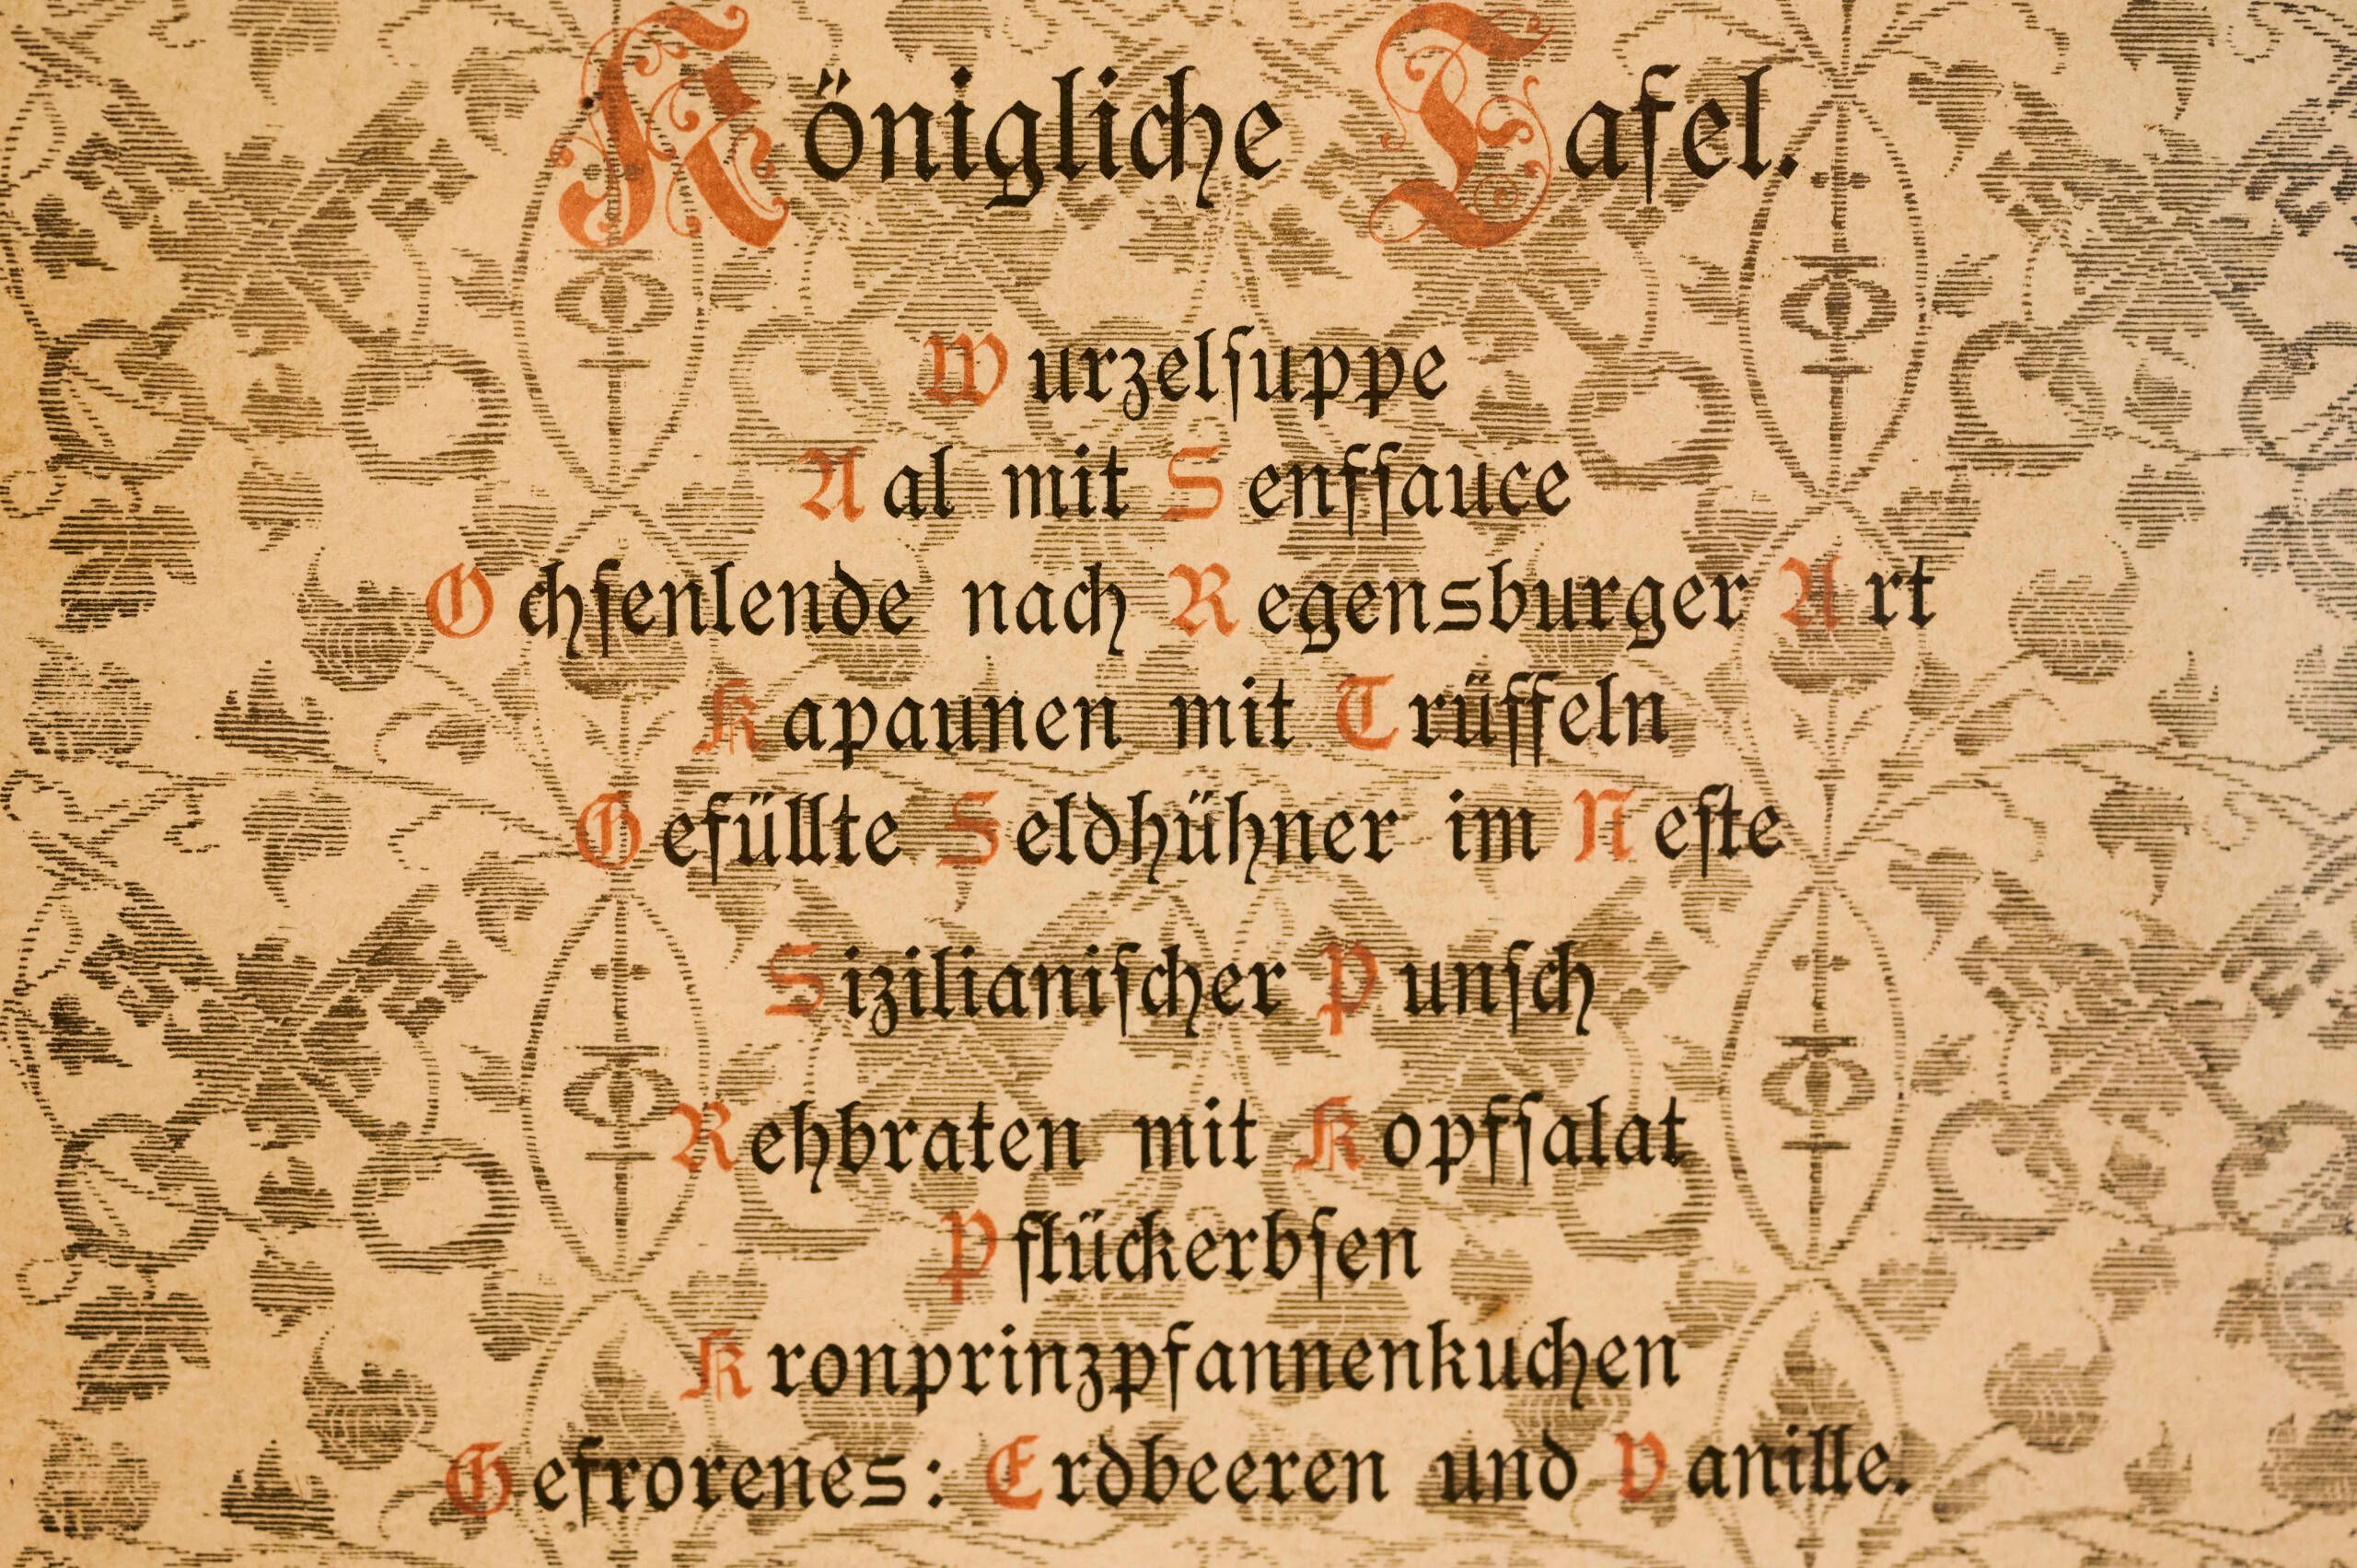 Königliche Tafel.
Wurzelſuppe
Aal mit Senfſauce
Ochſenlende nach Regensburger Art
Kapaunen mit Trüffeln
Gefüllte Seldhühner im Neſte
Sizilianiſcher Punſch
Rehbraten mit Kopfſalat
Pflückerbſen
Kronprinzpfannenkuchen
Gefrorenes: Erdbeeren und Vanille.